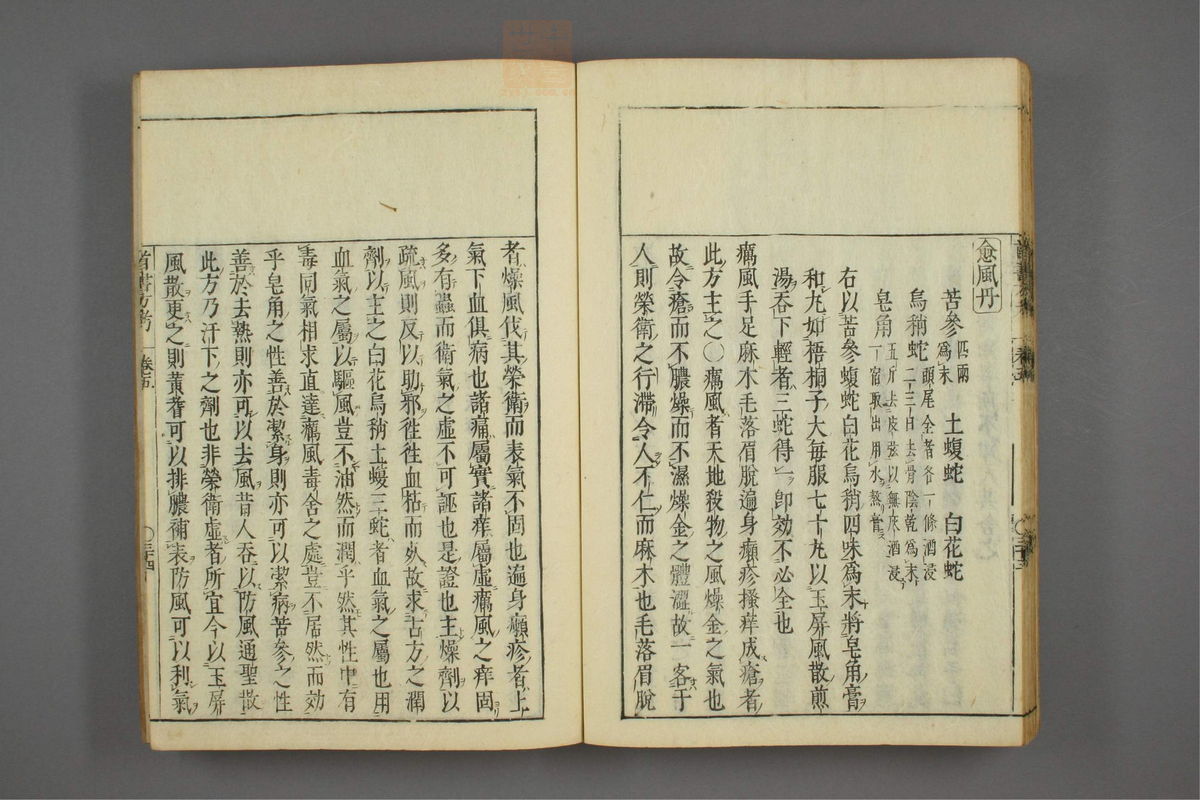 愈風丹
苦參四兩為末　土蝮蛇　白花蛇
烏稍蛇頭尾全者各一條酒浸二三日去骨陰乾爲末
皂角五斤去皮弦以無灰酒浸一宿取出用水熬膏
右以苦參蝮蛇白花烏稍四味爲末將皂角膏
和丸如梧桐子大每服七十丸以玉屏風散煎
湯吞下輕者三蛇得一卽効不必全也
癘風手足麻木毛落眉脫遍身癩疹搔痒成瘡者
此方主之〇癘風者天地殺物之風燥金之氣也
故令瘡而不膿燥而不濕燥金之體澀故一客于
人則榮衛之行滯令人不仁而麻木也毛落眉脫
者燥風伐其榮衛而表氣不固也遍身癩疹者上
氣下血俱病也諸痛屬實諸痒屬虛癘風之痒固
多有蟲而衛氣之虛不可誣也是證也主燥劑以
疏風則反以助邪徃徃血枯而死故求古方之潤
劑以主之白花烏稍土蝮三蛇者血氣之屬也用
血氣之屬以驅風豈不油然而潤乎然其性中有
毒同氣相求直達癘風毒舍之處豈不居然而効
乎皂角之性善於潔身則亦可以潔病苦參之性
善於去熱則亦可以去風昔人吞以防風通聖散
此方乃汗下之劑也非榮衛虛者所宜今以玉屏
風散更之則黃耆可以排膿補表防風可以利氣
卷五